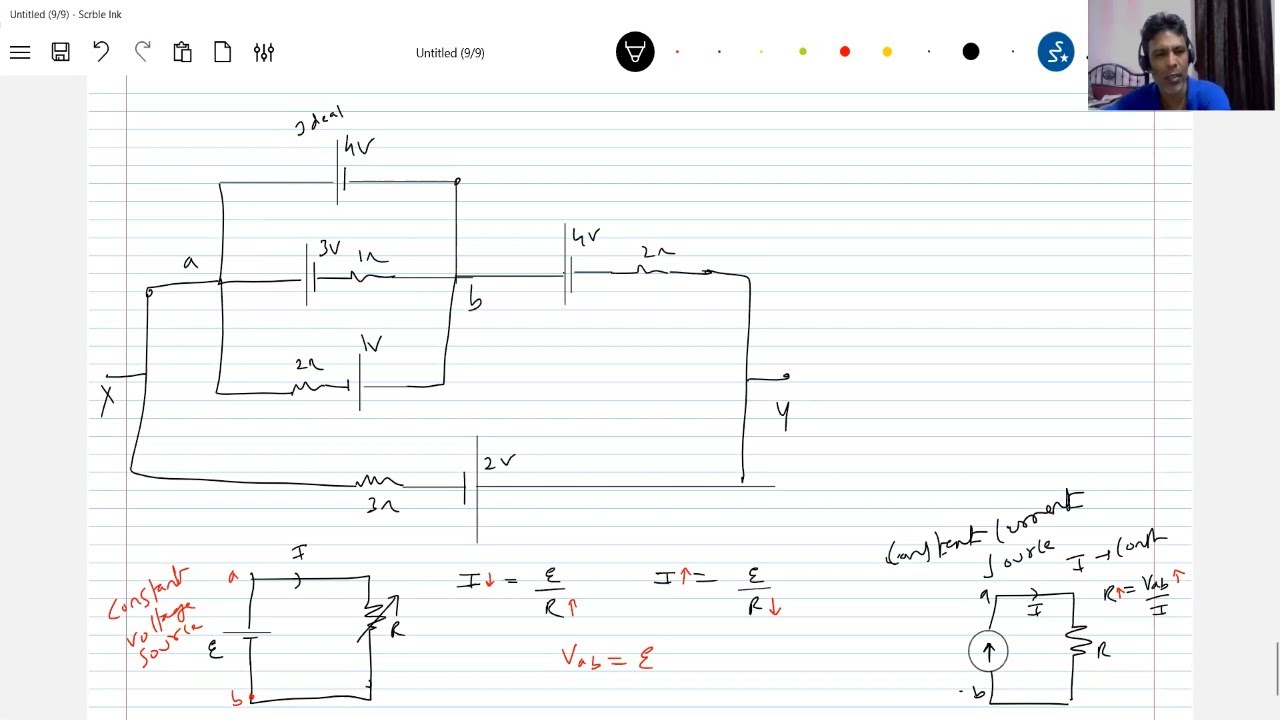 Untitled (9/9) - Scrble Ink
Untitled (9/9)
Ideal
4V
3V
1Ω
a
b
4V
2Ω
1V
2Ω
X
Y
2V
3Ω
Constant
voltage
source
a
I
ε
R
b
I↓ = ε/R↑
I↑ = ε/R↓
Vab = ε
Constant Current
Source
I → Const
a
I
R↑ = Vab↑/I
R
b